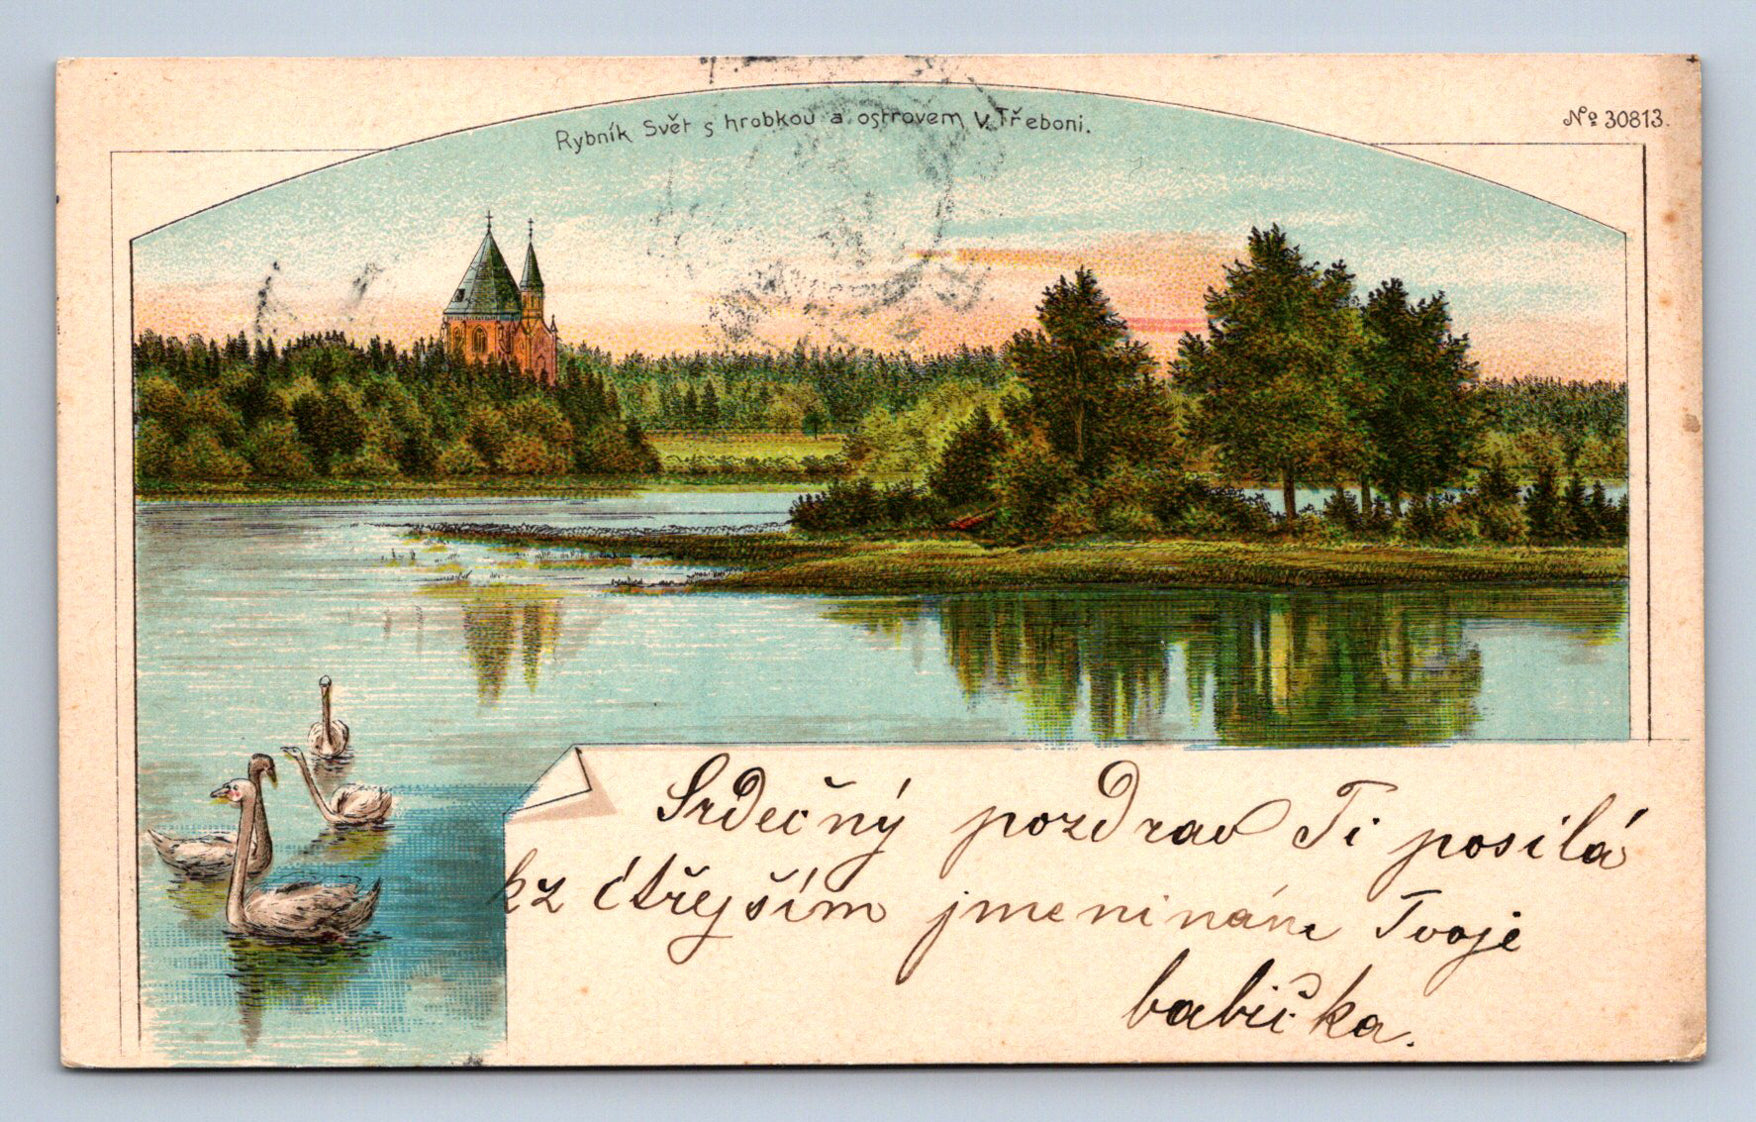 Rybník Svět s hrobkou a ostrovem v Třeboni.
No 30813.
Srdečný pozdrav Ti posílá
kz čtřejším jmeninám Tvoje
babička.